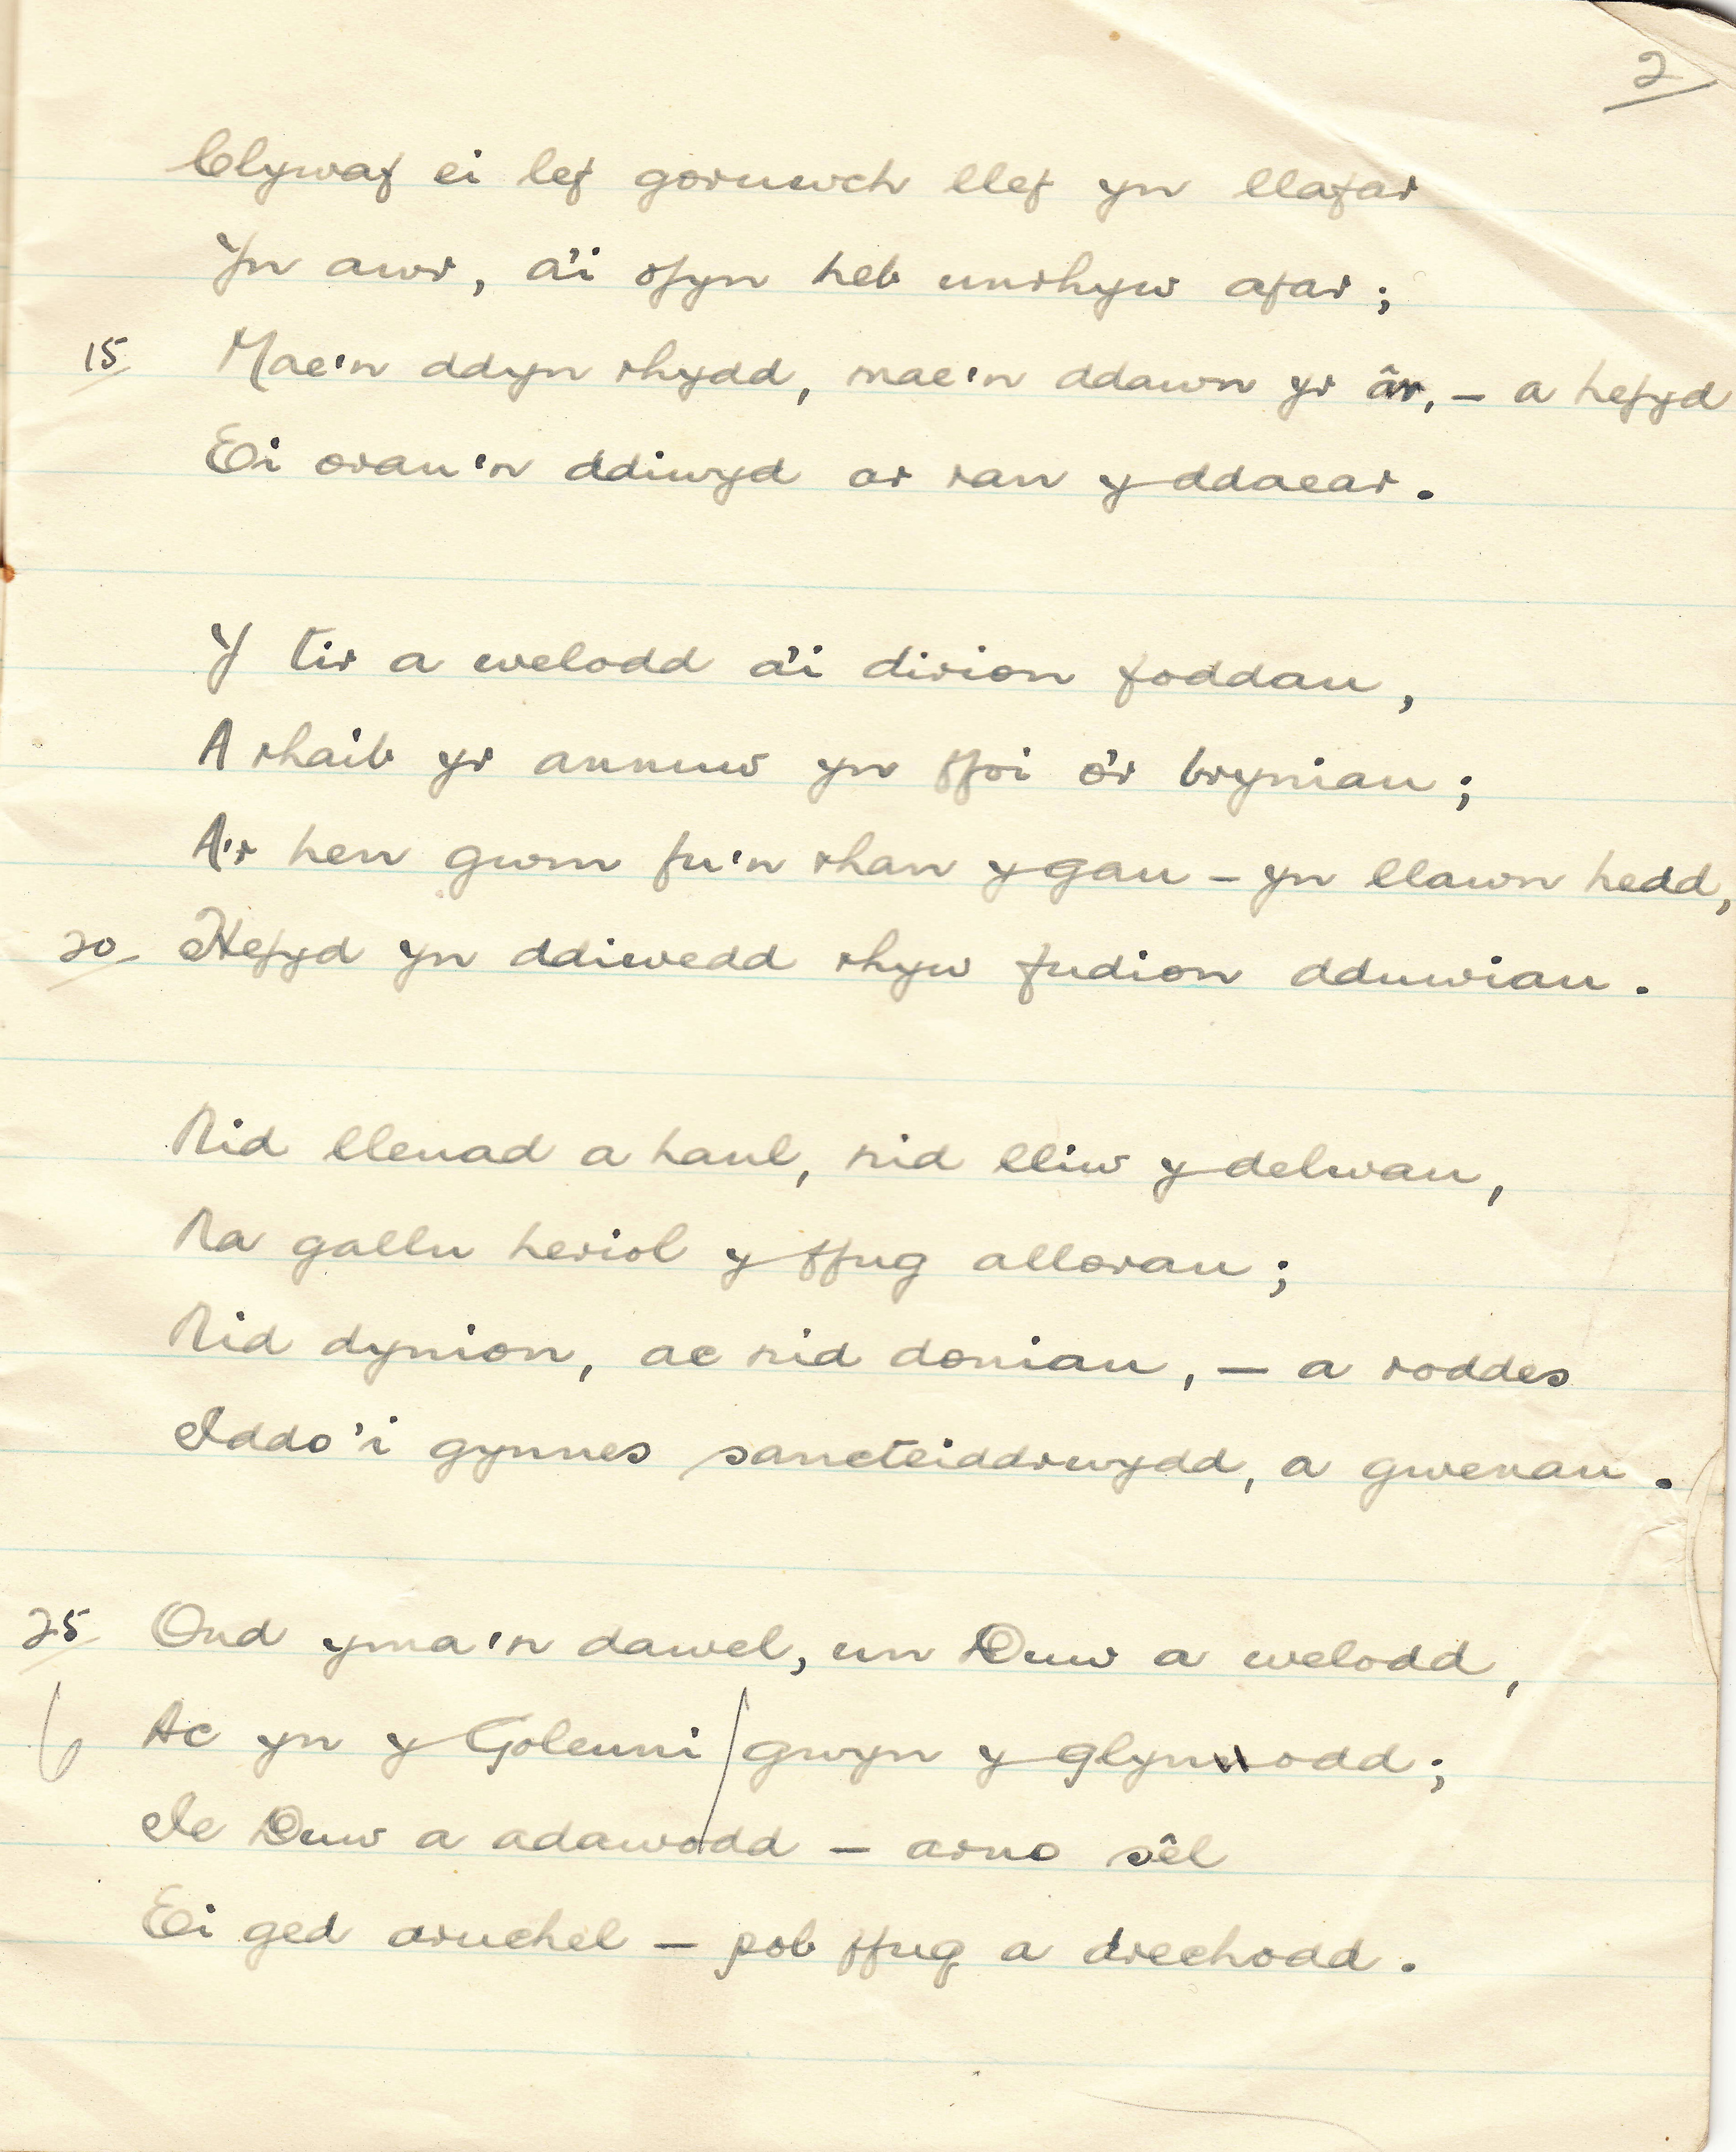 2
Clywaf ei lef goruwch llef yn llafar
Yn awr, a'i ofyn heb unrhyw afar;
15 Mae'n ddyn rhydd, mae'n ddawn yr âr, – a hefyd
Ei orau'n ddiwyd ar ran y ddaear.
Y tir a welodd a'i dirion foddau,
A rhaib yr annuw yn ffoi o'r bryniau;
A'r hen gwm fu'n rhan y gau – yn llawn hedd,
20 Hefyd yn ddiwedd rhyw fudion dduwiau.
Nid lleuad a haul, nid lliw y delwau,
Na gallu heriol y ffug allorau;
Nid dynion, ac nid doniau, – a roddes
Iddo'i gynnes sancteiddrwydd, a gwenau.
25 Ond yma'n dawel, un Duw a welodd,
Ac yn y Goleuni / gwyn y glynodd;
Ie Duw a adawodd – arno sêl
Ei ged aruchel – pob ffug a drechodd.